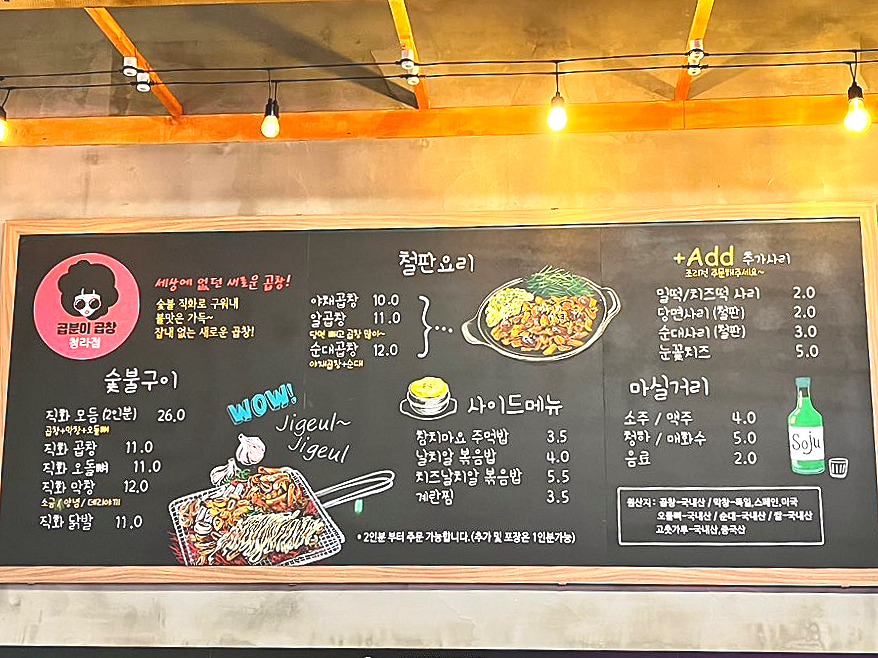 곱분이 곱창
청라점
세상에 없던 새로운 곱창!
숯불 직화로 구워내
불맛은 가득~
잡내 없는 새로운 곱창!
숯불구이
직화 모듬 (2인분) 26.0
곱창+막창+오돌뼈
직화 곱창 11.0
직화 오돌뼈 11.0
직화 막창 12.0
소금 / 양념 / 데리야끼
직화 닭발 11.0
WOW!
Jigeul~
Jigeul
철판요리
야채곱창 10.0
알곱창 11.0
당면 빼고 곱창 많이~
순대곱창 12.0
야채곱창+순대
사이드메뉴
참치마요 주먹밥 3.5
날치알 볶음밥 4.0
치즈날치알 볶음밥 5.5
계란찜 3.5
* 2인분 부터 주문 가능합니다.(추가 및 포장은 1인분가능)
+Add 추가사리
조리전 주문해주세요~
밀떡/치즈떡 사리 2.0
당면사리 (철판) 2.0
순대사리 (철판) 3.0
눈꽃치즈 5.0
마실거리
소주 / 맥주 4.0
청하 / 매화수 5.0
음료 2.0
Soju
원산지 : 곱창-국내산 / 막창-독일,스페인,미국
오돌뼈-국내산 / 순대-국내산 / 쌀-국내산
고춧가루-국내산,중국산